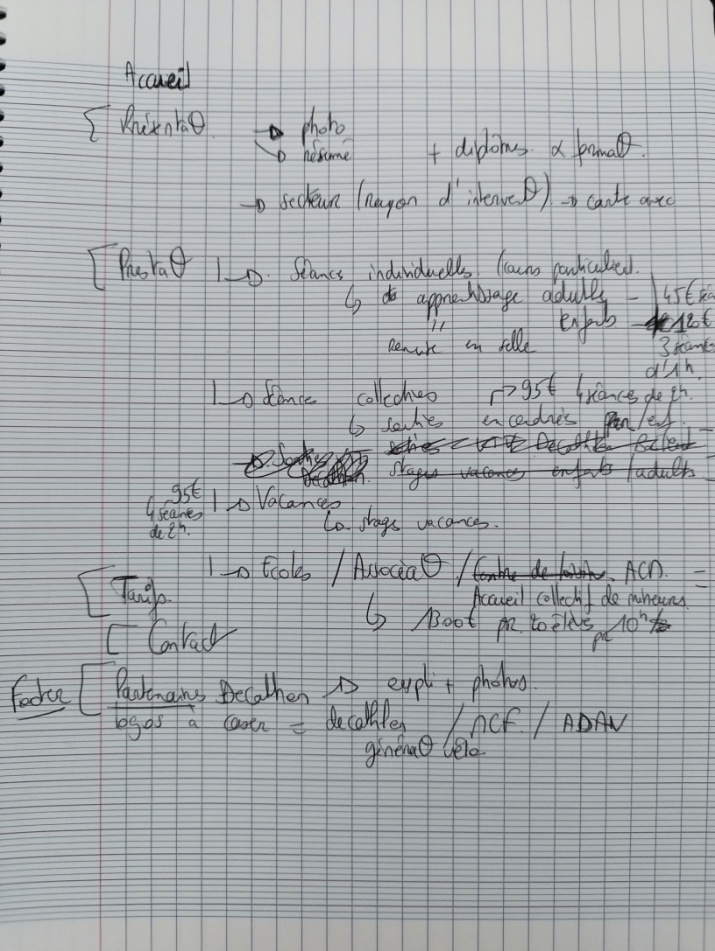 Accueil
PrésentaΘ → photo
↳ résumé + diplômes & formaΘ.
→ secteur (rayon d'intervenΘ) → carte avec
PrestaΘ → Séances individuelles (cours particuliers).
↳ apprentissage adultes - 45€
" enfants 120€
remise en selle 3 séances
d'1h.
→ Séance collectives → 95€ 4 séances de 2h.
↳ sorties encadrés
stages vacances enfants / adults
95€ → Vacances
4 séances ↳ stage vacances.
de 2h.
→ Ecoles / AssociaΘ / Centre de ACM =
Tarifs Accueil collectif de mineurs
↳ pr 20 élèves pr 10h
Contact
Footer Partenaires Decathlon → expli + photos.
logos à caser = decathlon / MCF / ADAV
généraΘ vélo